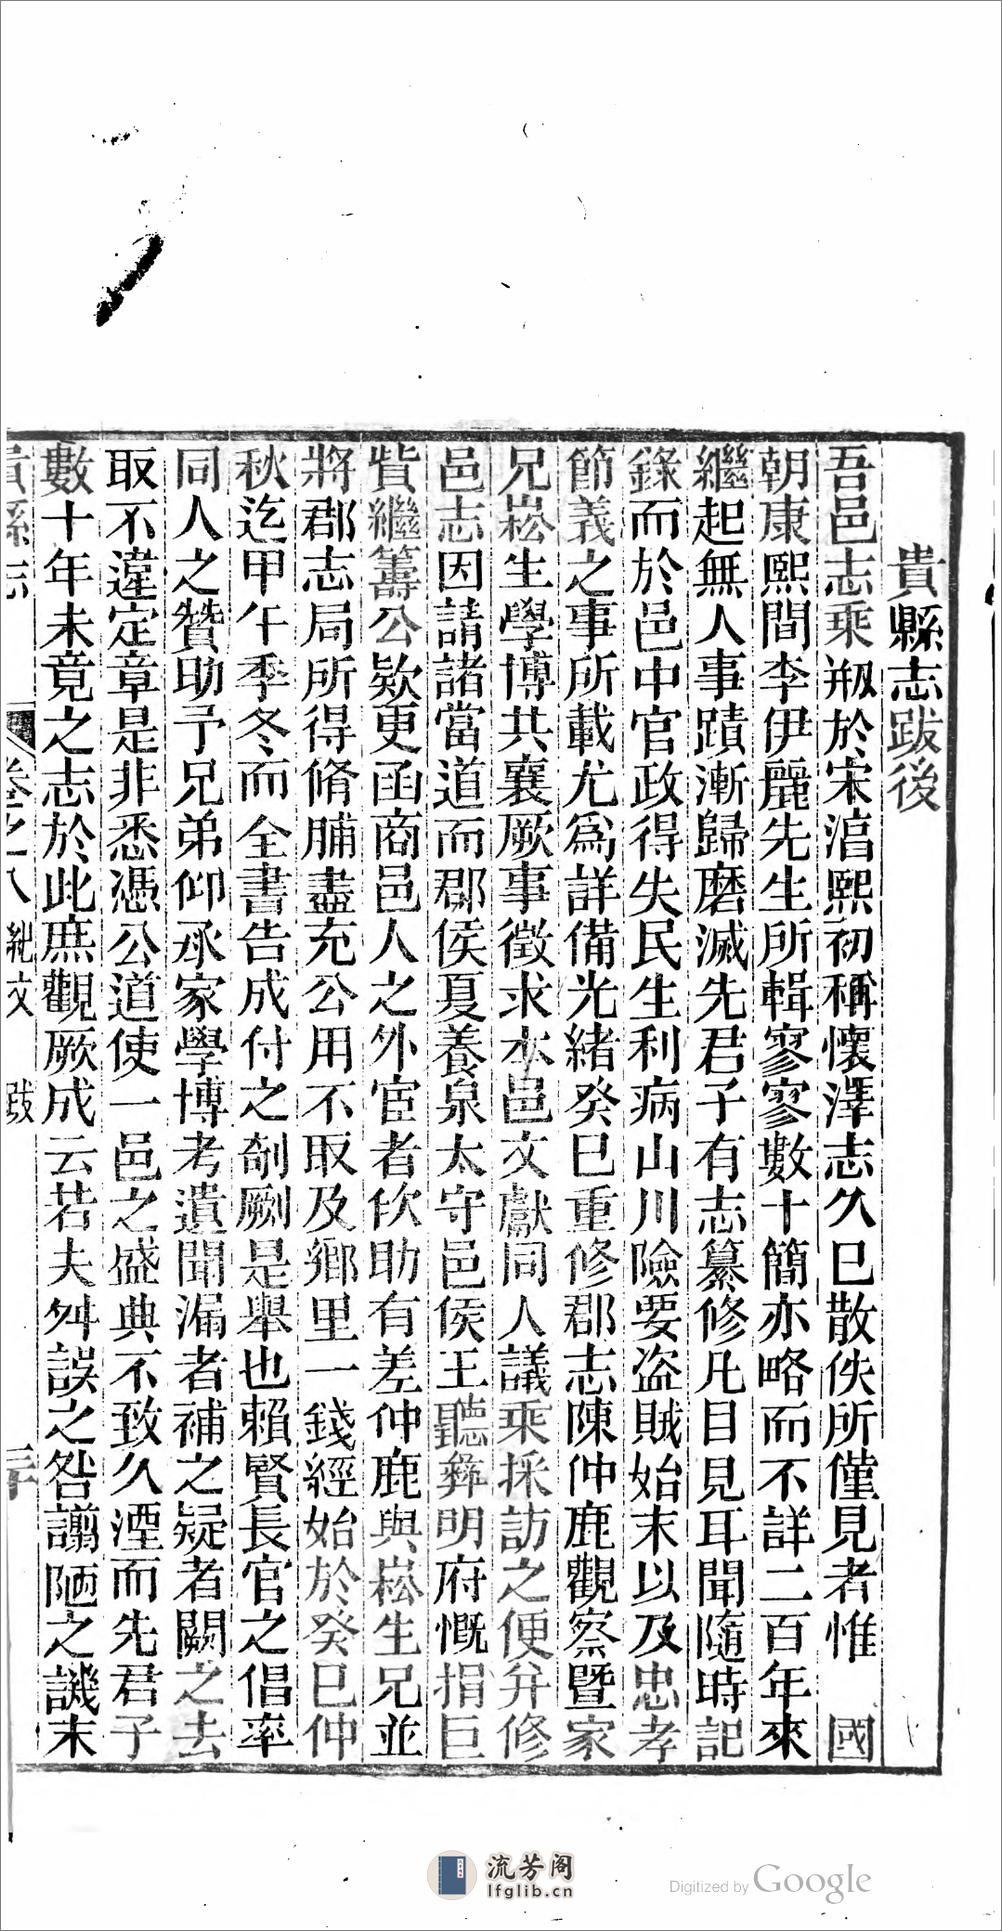 貴縣志跋後
吾邑志乘刱於宋淳熙初稱懷澤志久已散佚所僅見者惟 國
朝康熙間李伊麗先生所輯寥寥數十簡亦略而不詳二百年來
繼起無人事蹟漸歸磨滅先君子有志纂修凡目見耳聞隨時記
錄而於邑中官政得失民生利病山川險要盗賊始末以及忠孝
節義之事所載尤爲詳備光緒癸巳重修郡志陳仲鹿觀察暨家
兄崧生學博共襄厥事徵求本邑文獻同人議乘採訪之便弁修
邑志因請諸當道而郡侯夏養泉太守邑侯王聽彝明府慨捐巨
貲繼籌公欵更函商邑人之外宦者佽助有差仲鹿與崧生兄並
將郡志局所得脩脯盡充公用不取及鄉里一錢經始於癸巳仲
秋迄甲午季冬而全書告成付之剞劂是舉也賴賢長官之倡率
同人之贊助予兄弟仰承家學博考遺聞漏者補之疑者闕之去
取不違定章是非悉憑公道使一邑之盛典不致久湮而先君子
數十年未竟之志於此庶觀厥成云若夫舛誤之咎謭陋之譏末
貴縣志 卷之八 紀文 跋 三十
流芳阁
lfglib.cn
Digitized by Google